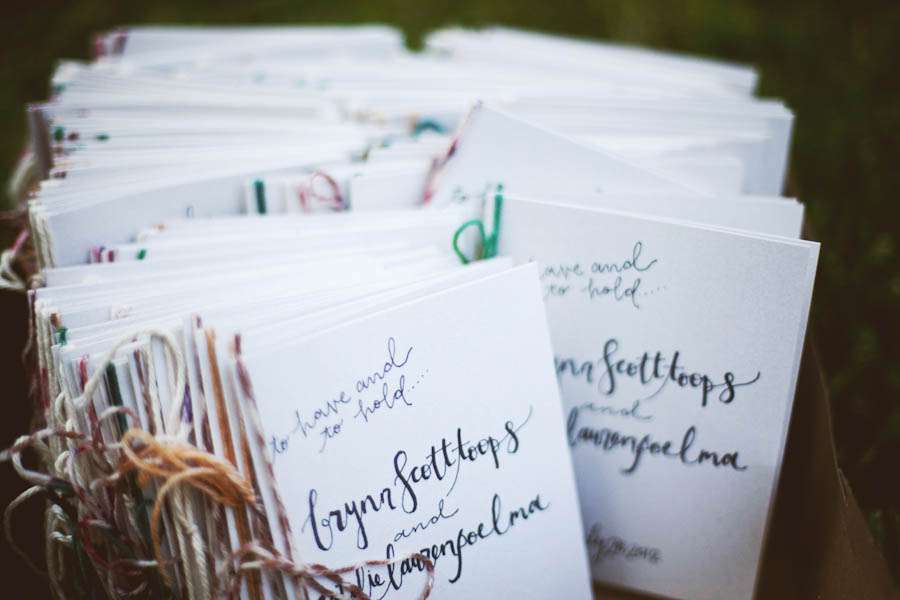 to have and
to hold....
brynn scott toops
and
lauren poelma
ave and
to hold....
nn scott toops
and
lauren poelma
2012